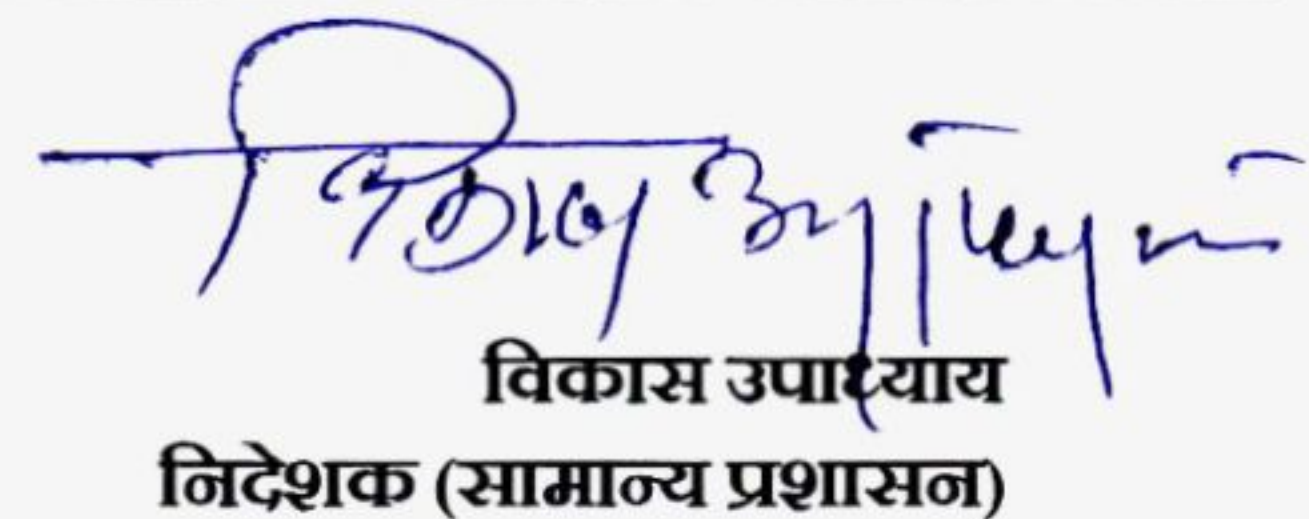 विकास उपाध्याय
निदेशक (सामान्य प्रशासन)